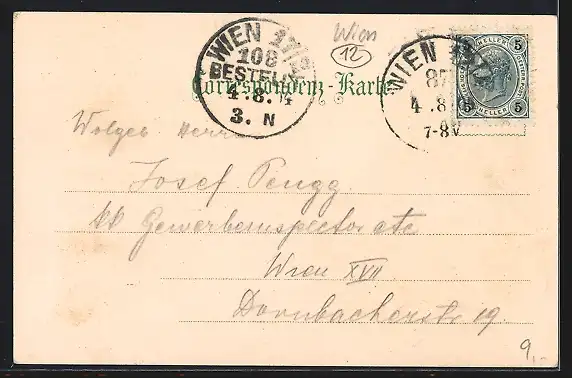 Wien
12
WIEN 17/
108
BESTELLT
4.8.
3. N
WIEN
87
4.8.
7-8V
5 HELLER 5
5 HELLER 5
Correspondenz-Karte
Josef Pengg
kk Gewerbeinspectorate
Wien XVII
Dornbacherstr 19.
9,-